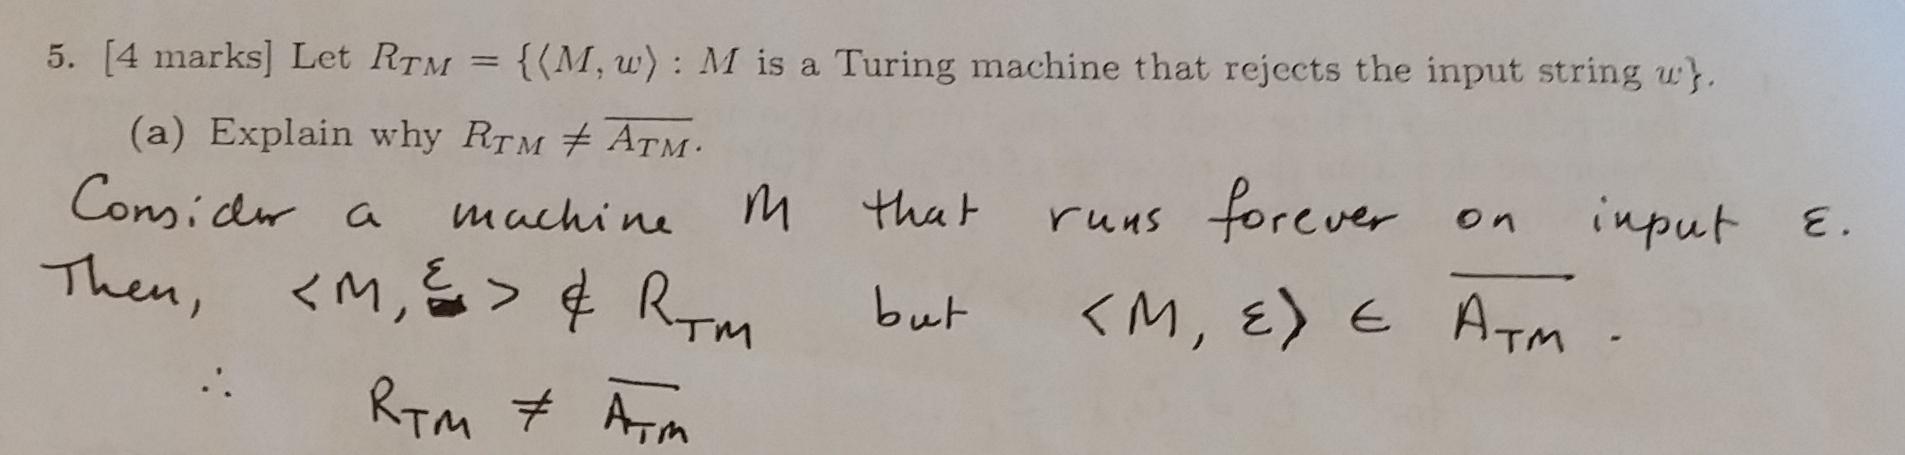 5. [4 marks] Let R_TM = {⟨M, w⟩ : M is a Turing machine that rejects the input string w}.
(a) Explain why R_TM ≠ \overline{A_TM}.
Consider a machine M that runs forever on input ε.
Then, <M, ε> ∉ R_TM but <M, ε> ∈ \overline{A_TM}.
∴ R_TM ≠ \overline{A_TM}